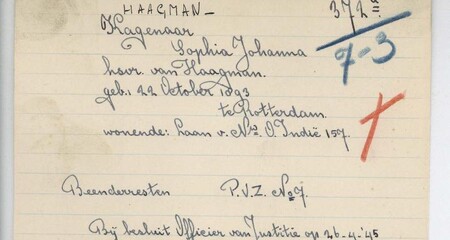 HAAGMAN-
372a
7-3
Kagenaar
Sophia Johanna
hsvr. van Haagman.
geb: 22 October 1893
te Rotterdam.
wonende: Laan v. Nw. O. Indië 157.
Beenderresten P.V.Z. No 7.
Bij besluit Officier van Justitie op 26-4-'45